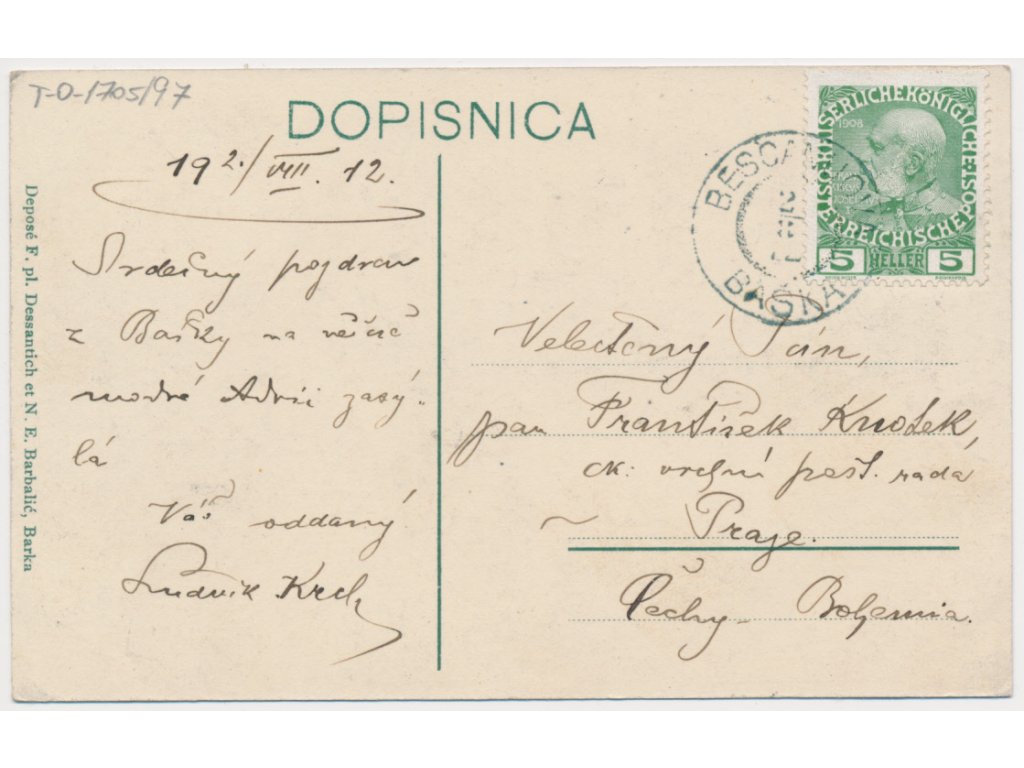 T-O-1705/97
DOPISNICA
19 2./VIII. 12.
Srdečný pozdrav
z Bašky na věčně
modré Adrii zasý-
lá
Váš oddaný
Ludvík
Deposé F. pl. Dessantich et N. E. Barbalić, Barka
KAISERLICHEKÖNIGLICHE
ÖSTERREICHISCHEPOST
1908
5 HELLER 5
BESCA
BAŠKA
Velectěný Pán,
pan František Knotek,
ck: vrchní pošt. rada
v Praze.
Čechy - Bohemia.